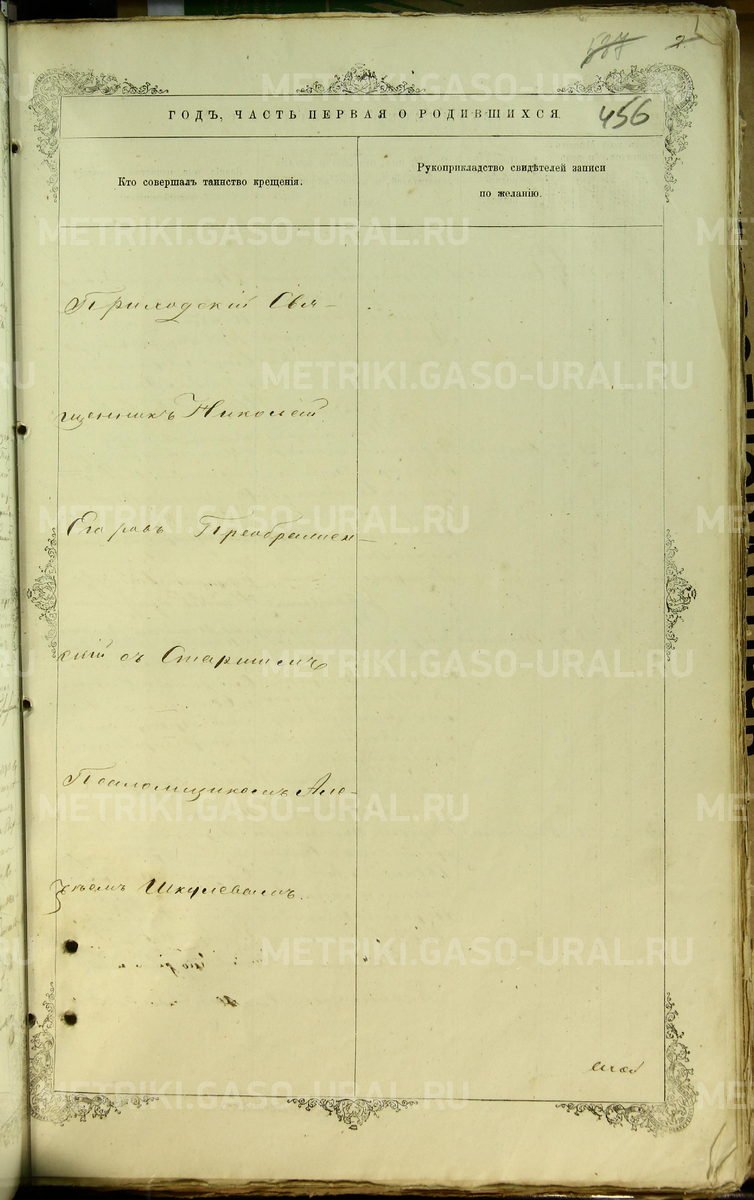 2
456
ГОДЪ, ЧАСТЬ ПЕРВАЯ О РОДИВШИХСЯ.
Кто совершалъ таинство крещенія.
Рукоприкладство свидѣтелей записи
по желанію.
Приходскій Свя-
щенникъ Николай
Егоровъ Преображен-
скій съ Старшимъ
Псаломщикомъ Але-
Шкулевымъ.
METRIKI.GASO-URAL.RU